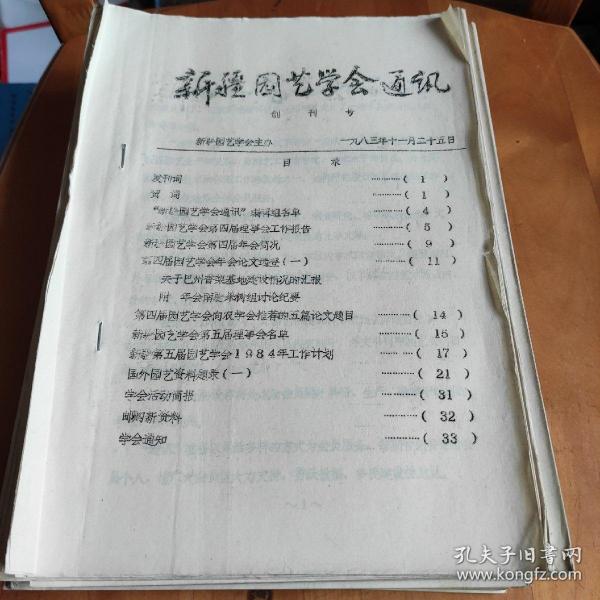 新疆园艺学会通讯
创刊号
新疆园艺学会主办 一九八三年十一月二十五日
目录
发刊词 …………( 1 )
贺词 …………( 1 )
“新疆园艺学会通讯”编辑组名单 …………( 4 )
新疆园艺学会第四届理事会工作报告 …………( 5 )
新疆园艺学会第四届年会简况 …………( 9 )
第四届园艺学会年会论文选登（一） …………( 11 )
关于巴州香梨基地建设情况的汇报
附 年会南疆果树组讨论纪要
第四届园艺学会向农学会推荐的五篇论文题目 …………( 14 )
新疆园艺学会第五届理事会名单 …………( 15 )
新疆第五届园艺学会1984年工作计划 …………( 17 )
国外园艺资料题录（一） …………( 21 )
学会活动简报 …………( 31 )
邮购新资料 …………( 32 )
学会通知 …………( 33 )
～1～
孔夫子旧书网
www.kongfz.com